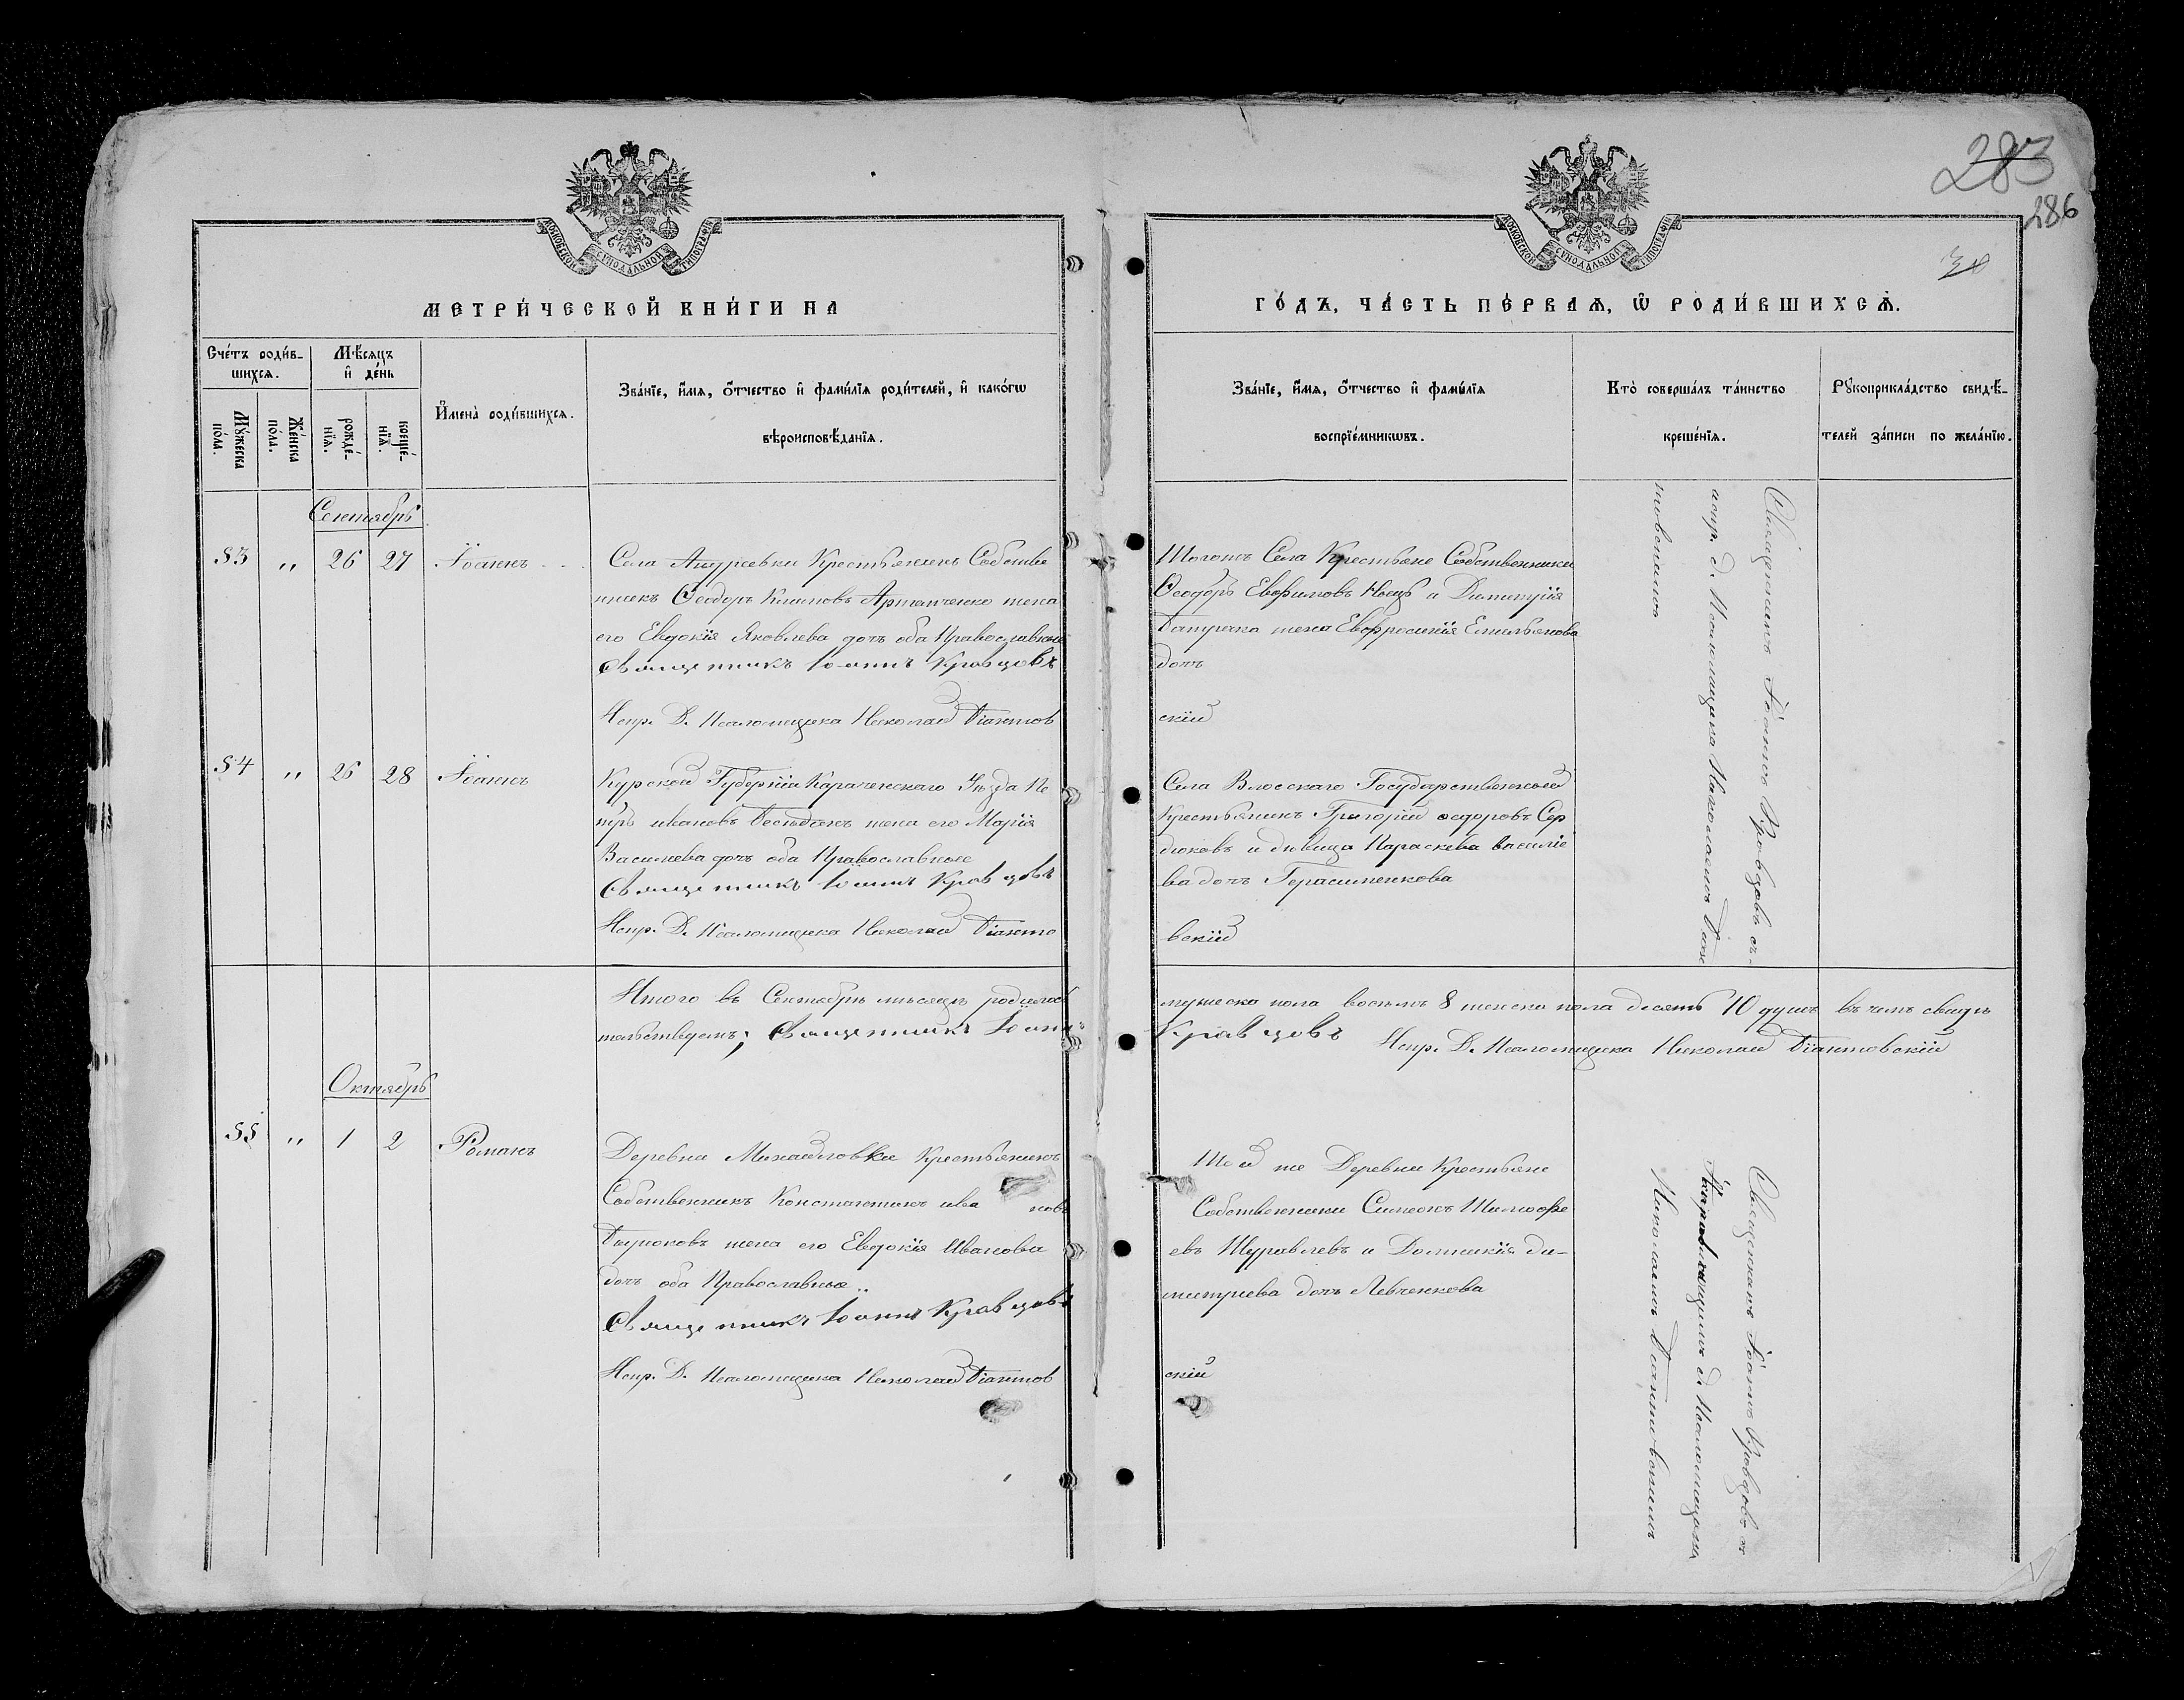 283
286
МОСКОВСКОЙ СѴНОДАЛЬНОЙ ТИПОГРАФІИ
МОСКОВСКОЙ СѴНОДАЛЬНОЙ ТИПОГРАФІИ
МЕТРИ́ЧЕСКОЙ КНИ́ГИ НА
ГО́ДЪ, ЧА́СТЬ ПЕ́РВАѦ, Ѿ РОДИ́ВШИХСѦ.
Сче́тъ роди́в-
шихсѧ.
Мꙋ́жеска по́ла.
Же́нска по́ла.
Мѣ́сѧцъ и҆ де́нь
рожде́-нїѧ.
креще́-нїѧ.
И҆мена̀ роди́вшихсѧ.
Зва́нїе, и҆́мѧ, ѻ҆́тчество и҆ фами́лїѧ роди́телей, и҆ како́гѡ
вѣроисповѣ́данїѧ.
Зва́нїе, и҆́мѧ, ѻ҆́тчество и҆ фами́лїѧ
воспрїе́мникѡвъ.
Кто̀ соверша́лъ та́инство
креще́нїѧ.
Рꙋкоприкла́дство свидѣ́-
телей за́писи по жела́нїю.
Сентябрь
53 " 26 27 Іоаннъ
Села Андреевки Крестьянинъ Собстве
нникъ Ѳеодоръ Климовъ Артемченко жена
его Евдокія Яковлева дочь оба Православные
Священникъ Іоаннъ Кравцовъ
Испр. Д. Псаломщика Николай Діантов
Тогожъ Села Крестьяне Собственники
Ѳеодоръ Евфимовъ и Димитрія
жена Евфросинія Емильянова
дочь
скій
Священникъ Іоаннъ Кравцовъ съ
испр. д. Псаломщика Николаемъ Діан
товскимъ
54 " 26 28 Іоаннъ
Курской Губерніи Уѣзда Пе
тръ ивановъ жена его Марія
Василиева дочь оба Православные
Священникъ Іоаннъ Кравцовъ
Испр. Д. Псаломщика Николай Діанто
Села Государственной
Крестьянинъ Григорій ѳедоровъ Сер
дюковъ и дѣвица Параскева василіе
ва дочь Герасименкова
вскій
Итого въ Сентябрѣ мѣсяцѣ родилось
мужеска пола восемь 8 женска пола десять 10 душъ въ чемъ свидѣ
тельствуемъ; Священникъ Іоаннъ
Кравцовъ Испр. Д. Псаломщика Николай Діантовскій
Октябрь
55 " 1 2 Романъ
Деревни Михайловки Крестьянинъ
Собственникъ Константинъ ива новъ
жена его Евдокія Иванова
дочь оба Православные
Священникъ Іоаннъ Кравцовъ
Испр. Д. Псаломщика Николай Діантов
Той же Деревни Крестьяне
Собственники Симеонъ Тимофе
евъ Журавлевъ и Домникія ди-
митріева дочь Левченкова
скій
Священникъ Іоаннъ Кравцовъ съ
д. Псаломщика
Николаемъ Діантовскимъ